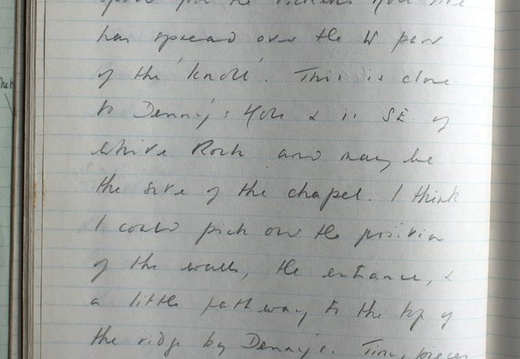 has spread over the W part
of the 'knoll'. This is close
to Denny's Hole & is SE of
White Rock and may be
the site of the chapel. I think
I could pick out the position
of the walls, the entrance, &
a little pathway to the top of
the ridge by Denny's. Two pieces